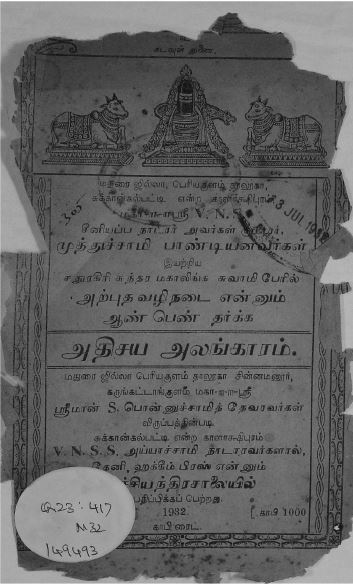 கடவுள் துணை.
மதுரை ஜில்லா, பெரியகுளம் தாலுகா,
சுக்கான்கல்பட்டி என்ற காளாக்ஷிபுரம்
மகா-ா-ா-ஸ்ரீ V. N. S.
சீனியப்ப நாடார் அவர்கள் குமாரர்,
முத்துச்சாமி பாண்டியனவர்கள்
இயற்றிய
சதுரகிரி சுந்தர மகாலிங்க சுவாமி பேரில்
அற்புத வழிநடை என்னும்
ஆண் பெண் தர்க்க
அதிசய அலங்காரம்.
மதுரை ஜில்லா பெரியகுளம் தாலூகா சின்னமனூர்,
கருங்கட்டாங்குளம் மகா-ா-ா-ஸ்ரீ
ஸ்ரீமான் S. பொன்னுச்சாமித் தேவரவர்கள்
விருப்பத்தின்படி
சுக்கான்கல்பட்டி என்ற காளாக்ஷிபுரம்
V. N. S. S. அய்யாச்சாமி நாடாரவர்களால்,
தேனி, ஹக்கீம் பிரஸ் என்னும்
யந்திரசாலையில்
பதிப்பிக்கப் பெற்றது.
1932. காபி 1000
காபிரைட்.
3 JUL 193
Q23:417
M32
149493